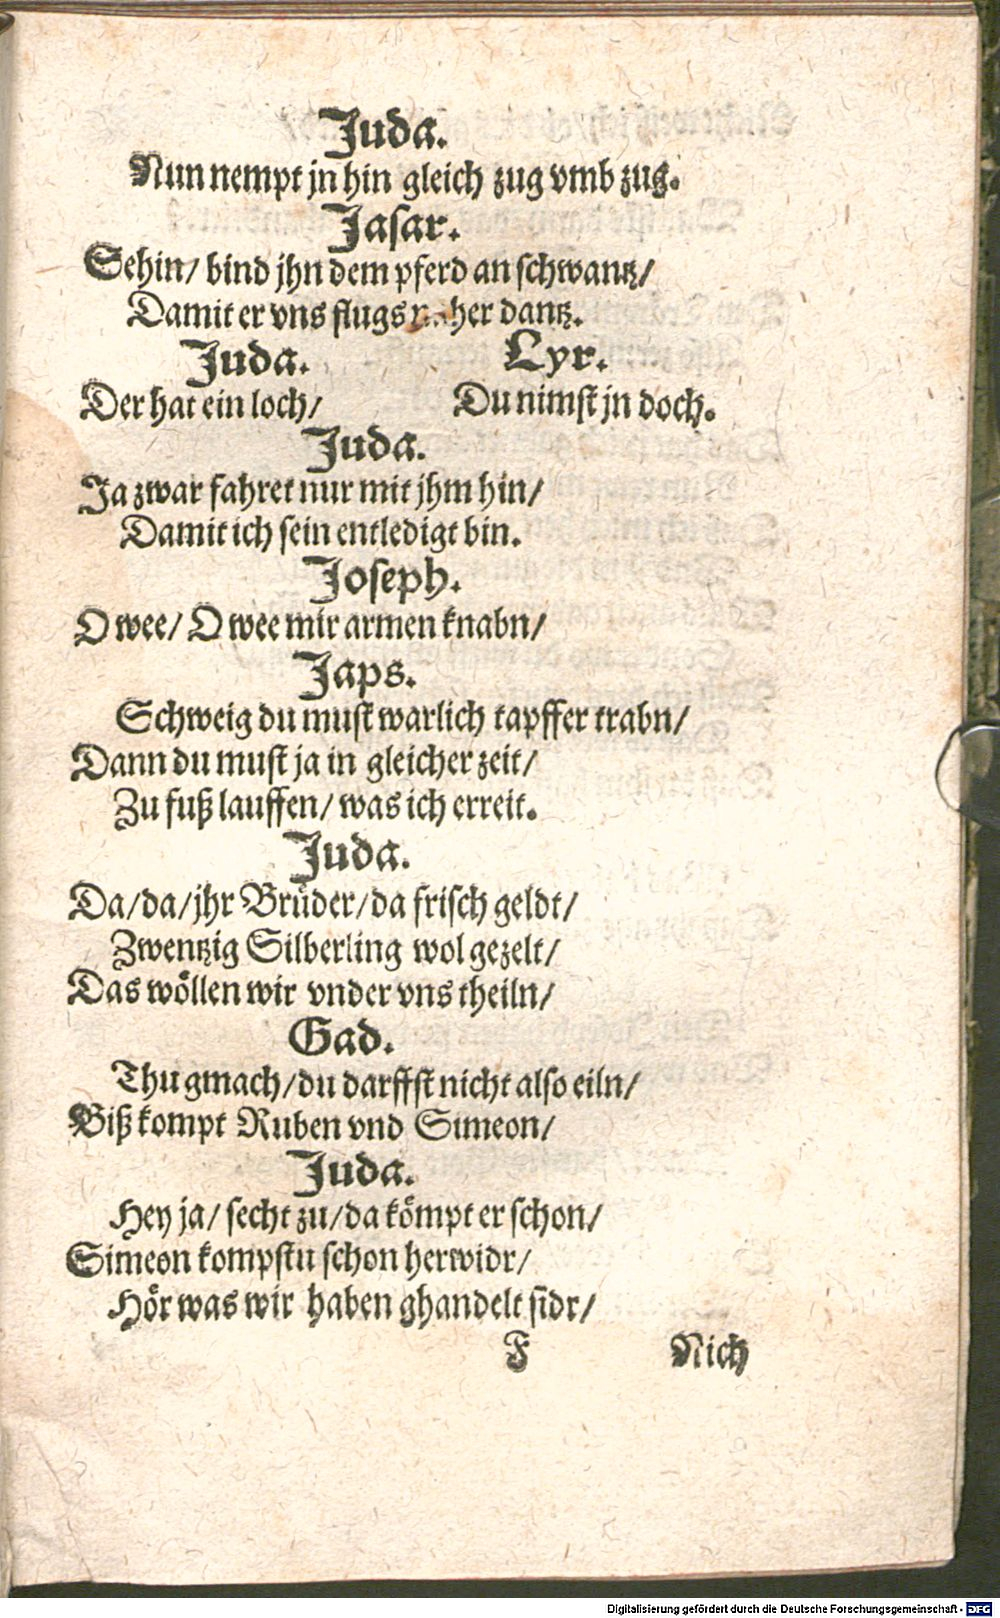 Juda.
Nun nempt jn hin gleich zug vmb zug.
Jasar.
Sehin/ bind jhn dem pferd an schwantz/
Damit er vns flugs her dantz.
Juda. Lyr.
Der hat ein loch/ Du nimst jn doch.
Juda.
Ja zwar fahret nur mit jhm hin/
Damit ich sein entledigt bin.
Joseph.
O wee/ O wee mir armen knabn/
Japs.
Schweig du must warlich tapffer trabn/
Dann du must ja in gleicher zeit/
Zu fuß lauffen/ was ich erreit.
Juda.
Da/da/jhr Brüder/da frisch geldt/
Zwentzig Silberling wol gezelt/
Das wöllen wir vnder vns theiln/
Gad.
Thu gmach/du darffst nicht also eiln/
Biß kompt Ruben vnd Simeon/
Juda.
Hey ja/ secht zu/da kömpt er schon/
Simeon kompstu schon herwidr/
Hör was wir haben ghandelt sidr/
F Nich
Digitalisierung gefördert durch die Deutsche Forschungsgemeinschaft - DFG